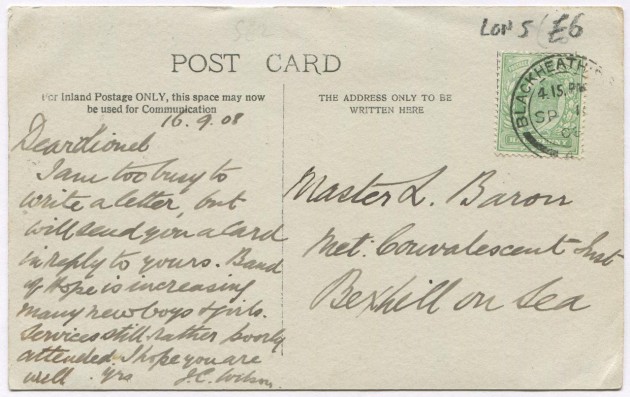 LON S £6
POST CARD
For Inland Postage ONLY, this space may now
be used for Communication
16.9.08
Dear Lionel
I am too busy to
write a letter, but
will send you a card
in reply to yours. Band
of Hope is increasing
many new boys & girls.
Services still rather poorly
attended. I hope you are
well. Yrs J.C. Wilson
THE ADDRESS ONLY TO BE
WRITTEN HERE
BLACKHEATH
4.15 PM
SP
Master L. Baron
Met. Convalescent Inst
Bexhill on Sea